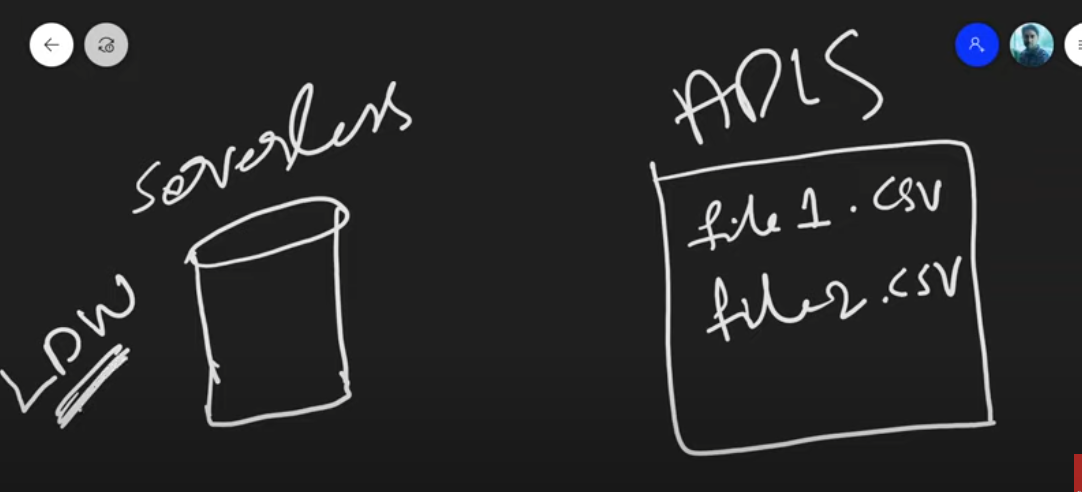 serverless
LDW
ADLS
file 1 . csv
file 2 . csv